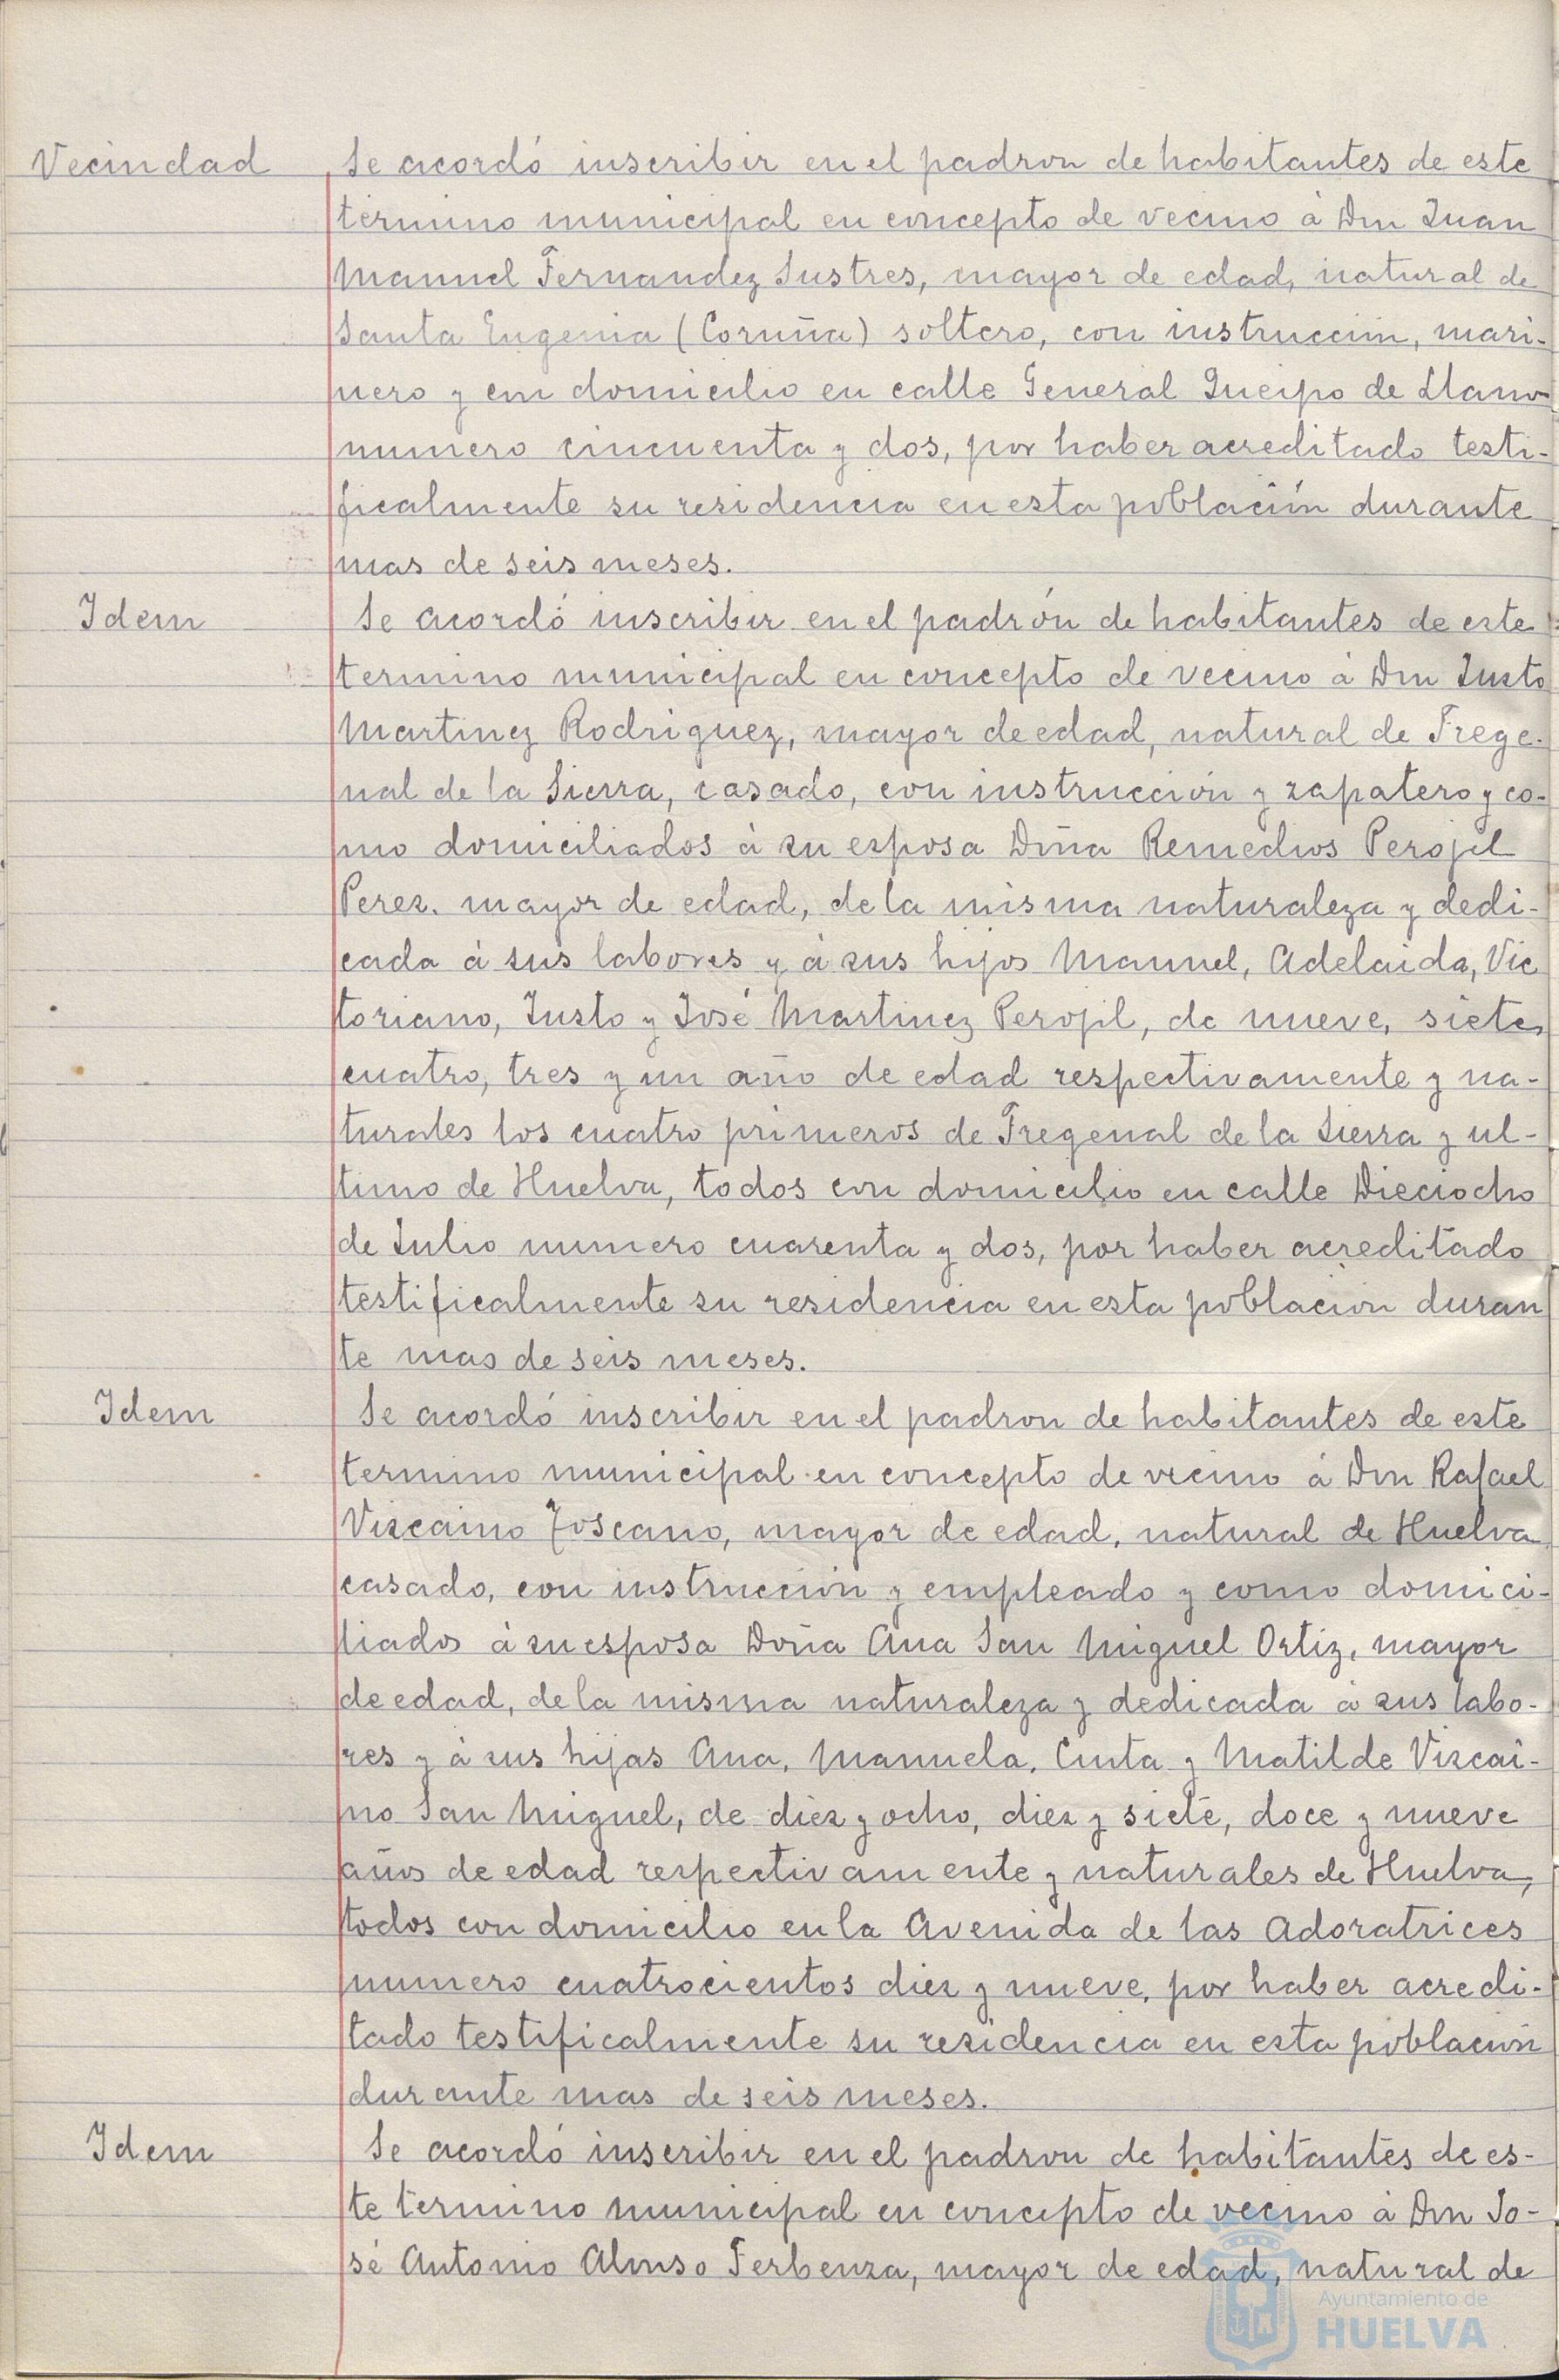 Vecindad Se acordó inscribir en el padron de habitantes de este
término municipal en concepto de vecino á Don Juan
Manuel Fernandez Sustres, mayor de edad, natural de
Santa Eugenia (Coruña) soltero, con instruccion, mari-
nero y con domicilio en calle General Queipo de Llano
numero cincuenta y dos, por haber acreditado testi-
ficalmente su residencia en esta población durante
mas de seis meses.
Idem Se acordó inscribir en el padrón de habitantes de este
termino municipal en concepto de vecino á Don Justo
Martinez Rodriguez, mayor de edad, natural de Frege-
nal de la Sierra, casado, con instrucción y zapatero y co-
mo domiciliados á su esposa Doña Remedios Perojil
Perez, mayor de edad, de la misma naturaleza y dedi-
cada á sus labores y á sus hijos Manuel, Adelaida, Vic
toriano, Justo y José Martinez Perojil, de nueve, siete,
cuatro, tres y un año de edad respectivamente y na-
turales los cuatro primeros de Fregenal de la Sierra y ul-
timo de Huelva, todos con domicilio en calle Dieciocho
de Julio numero cuarenta y dos, por haber acreditado
testificalmente su residencia en esta poblacion duran
te mas de seis meses.
Idem Se acordó inscribir en el padron de habitantes de este
termino municipal en concepto de vecino á Don Rafael
Vizcaino Toscano, mayor de edad, natural de Huelva
casado, con instrucción y empleado y como domici-
liados á su esposa Doña Ana San Miguel Ortiz, mayor
de edad, de la misma naturaleza y dedicada á sus labo-
res y á sus hijas Ana, Manuela, Cinta y Matilde Vizcai-
no San Miguel, de diez y ocho, diez y siete, doce y nueve
años de edad respectivamente y naturales de Huelva,
todos con domicilio en la Avenida de las Adoratrices
numero cuatrocientos diez y nueve, por haber acredi-
tado testificalmente su residencia en esta población
durante mas de seis meses.
Idem Se acordó inscribir en el padron de habitantes de es-
te termino municipal en concepto de vecino á Don Jo-
sé Antonio Alonso Ferbenza, mayor de edad, natural de
Ayuntamiento de
HUELVA